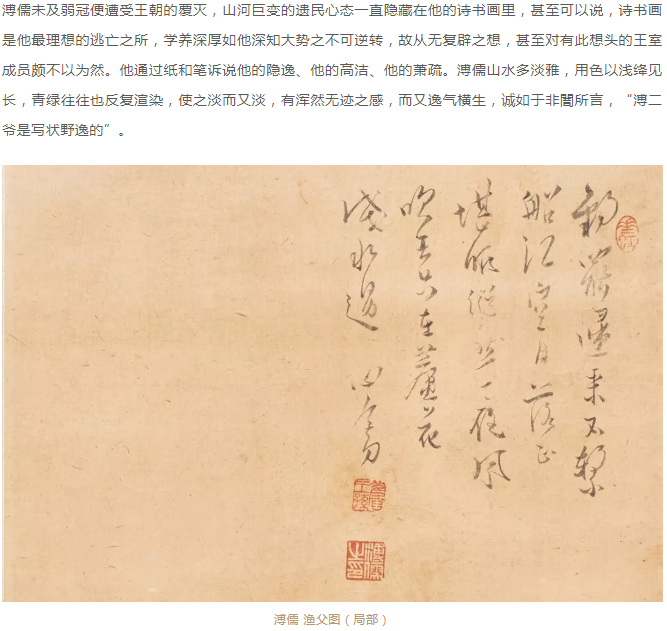 溥儒未及弱冠便遭受王朝的覆灭，山河巨变的遗民心态一直隐藏在他的诗书画里，甚至可以说，诗书画
是他最理想的逃亡之所，学养深厚如他深知大势之不可逆转，故从无复辟之想，甚至对有此想头的王室
成员颇不以为然。他通过纸和笔诉说他的隐逸、他的高洁、他的萧疏。溥儒山水多淡雅，用色以浅绛见
长，青绿往往也反复渲染，使之淡而又淡，有浑然无迹之感，而又逸气横生，诚如于非闇所言，“溥二
爷是写状野逸的”。
釣罷歸来不繫
船江月落正
堪眠縱然一夜風
吹去只在蘆花
淺水邊 心畬
舊王孫
溥儒之印
溥儒 渔父图（局部）